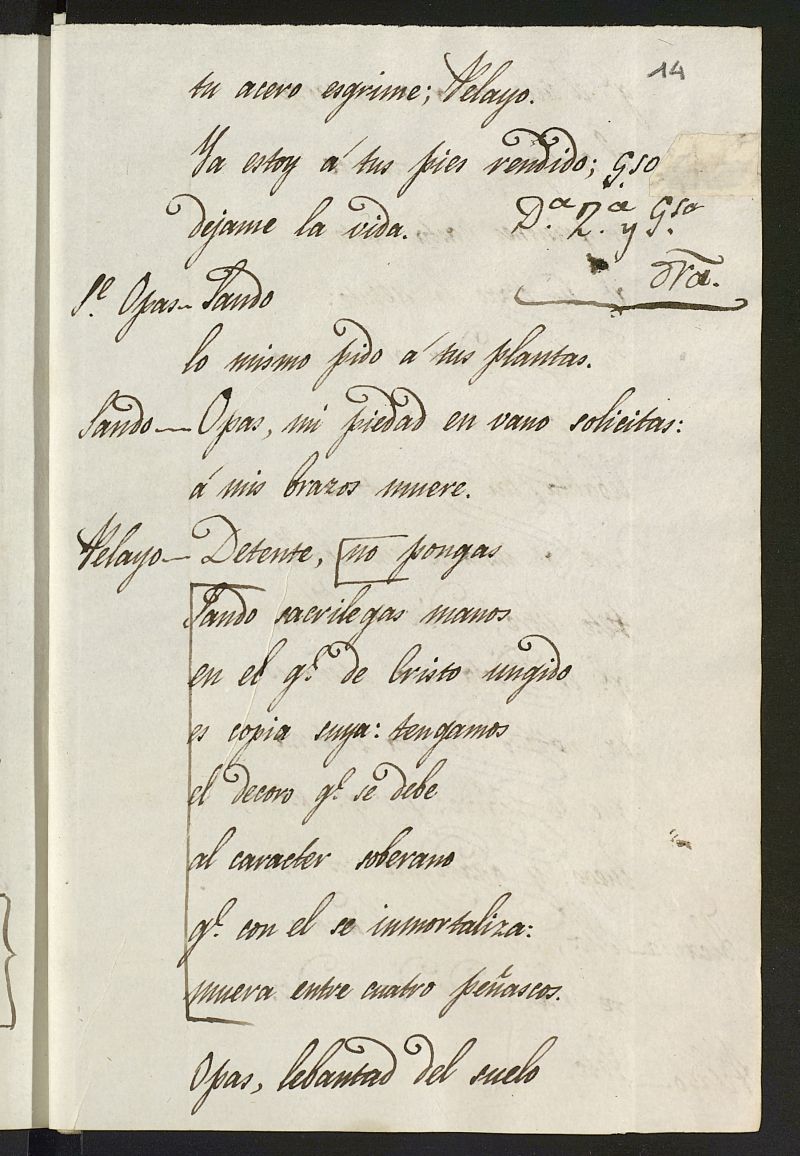 14
tu acero esgrime; Pelayo.
Ya estoy á tus pies rendido; Gso
dejame la vida. D.ª 2.ª y G.so
dra.
S.e Opas- Sando
lo mismo pido á tus plantas.
Sando- Opas, mi piedad en vano solicitas:
á mis brazos muere.
Pelayo- Detente, no pongas
Sando sacrilegas manos
en el q.e de Cristo ungido
es copia suya: tengamos
el decoro q.e se debe
al caracter soberano
q.e con el se inmortaliza:
muera entre cuatro peñascos.
Opas, lebantad del suelo